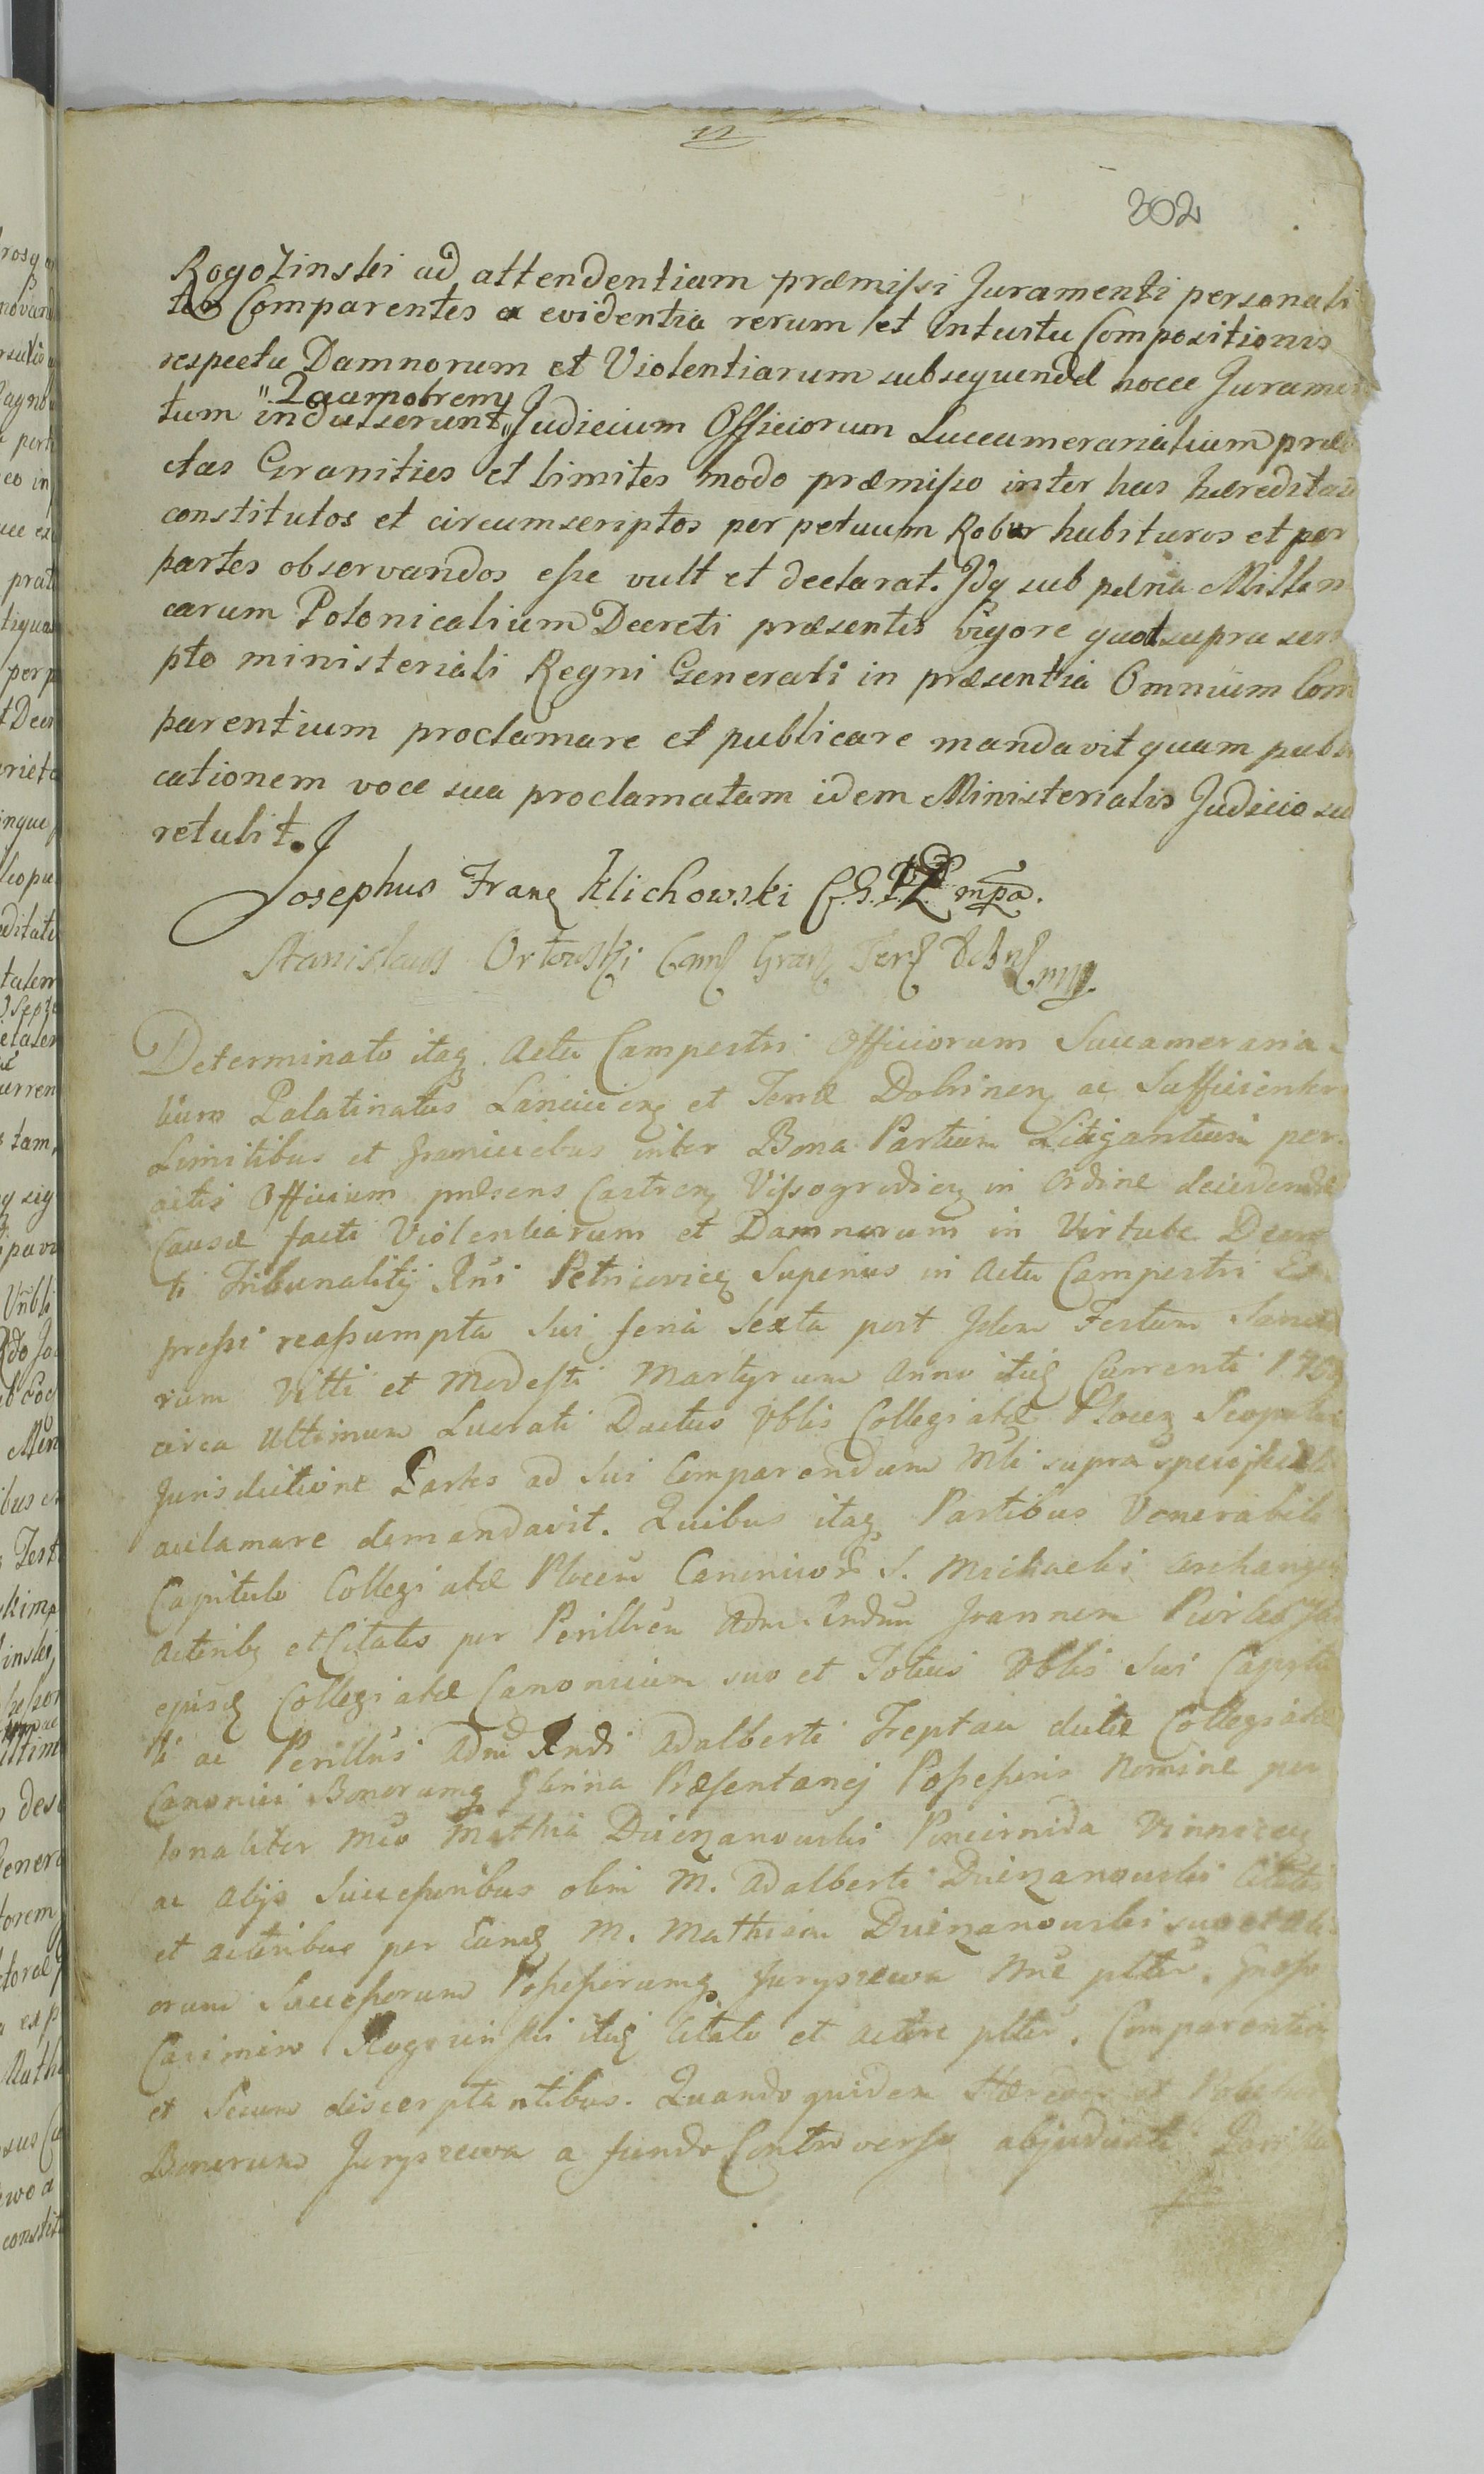 302
Rogozinski ad attendentiam præmissi Juramenti personali
ter Comparentes ex evidentia rerum et intuitu Compositionis
respectu Damnorum et Violentiarum subsequendæ hocce Juramen
"Quamobrem
tum indulserunt" Judicium Officiorum Succamerarialium præ
ctas Granities et limites modo præmisso inter has hæreditates
constitutos et circumscriptos perpetuum Robur habituros et per
partes observandos esse vult et declarat. Idq sub pœna Mille m
carum Polonicalium Decreti præsentis vigore quod supra scri
pto ministeriali Regni Generali in præsentia Omnium Com
parentium proclamare et publicare mandavit quam publi
cationem voce sua proclamatam idem Ministerialis Judicio suo
retulit.
Josephus Franc Klichowski C. G. mpa.
Stanislaus Orłowski Cam Gran Terr Dobr mp.
Determinato itaq. Actu Campestri Officiorum Succameraria-
lium Palatinatus Lanciciens et Terræ Dobrinen ac Sufficienter
Limitibus et Graniciebus inter Bona Partium Litigantium per-
actis Officium præsens Castren Vissogrodien in Ordine decidendæ
Causæ facti Violentiarum et Damnorum in Virtute Decre
ti Tribunalitij Rni Petricovien Superius in Actu Campestri Ex
pressi reassumpta Sui feria Sexta post Idem Festum Sancto
rum Vitti et Modesti Martyrum Anno itq Currenti
circa Ultimum Lucrati Ductus Vblis Collegiatæ Plocen Scopulum
Jurisdictione Partes ad Sui Comparendum Mli supra specificato
acclamare demandavit. Quibus itaq Partibus Venerabili
Capitulo Collegiatæ Plocen Canonicor S. Michaelis Archangeli
Actoribq et Citatis per Perillrem Adm. Rndum Joannem
ejusd Collegiatæ Canonicum suo et Totius Vblis Sui Capitu
li ac Perillris Adm Rndi Adalberti Treptau dictæ Collegiatæ
Canonici Bonorumq Præsentanej Possessoris Nomine per
sonaliter Mco Mathia Dzierzanowski Pincernida Vinnicen
ac Alijs Successoribus olim M. Adalberti Dzierzanowski Citatis
et Actoribus per Eund M. Mathiam Dzierzanowski suo et Ali
orum Successorum Possessorumq Juryszewa Nne plter. Groso
Casimiro Rogozinski itq Citato et Actore pltr. Comparentibus
et Secum discerptantibus. Quandoquidem Hæredes et Possessores
Bonorum Juryszewa a fundo Controverso abjudicati